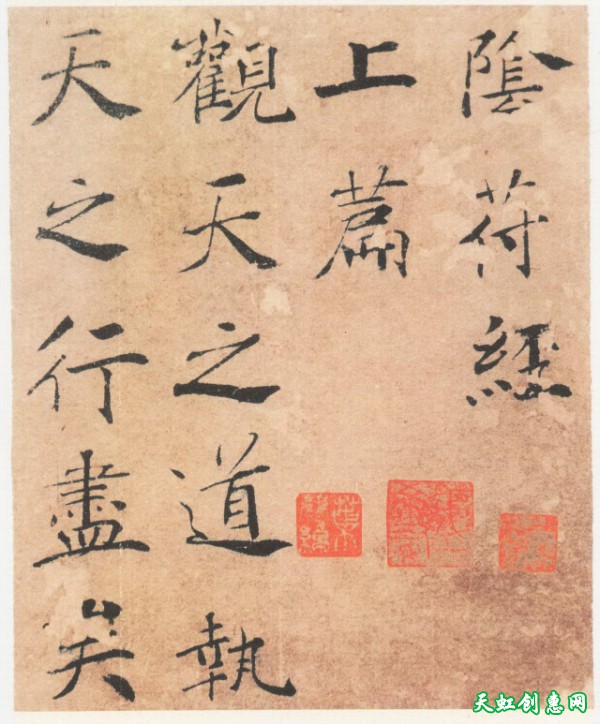 陰符經
上篇
觀天之道執
天之行盡矣
天虹创惠网